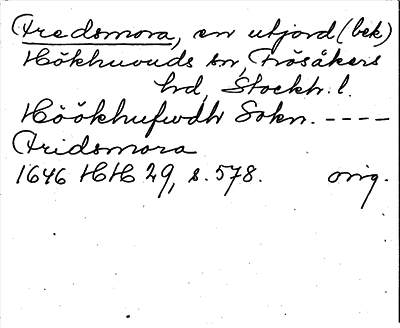 Fredsmora, en utjord (bek)
Hökhuvuds sn, Frösåkers
hd, Stockh. l.
Höökhufwdh Sokn. ----
Fridsmora
1646 HH 29, s. 578. orig.